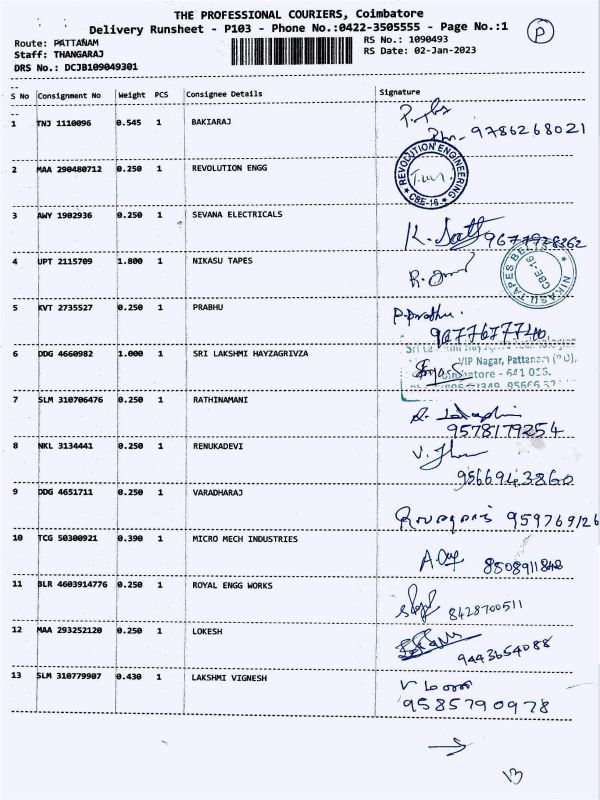 THE PROFESSIONAL COURIERS, Coimbatore
Delivery Runsheet - P103 - Phone No.:0422-3505555 - Page No.:1
P
Route: PATTANAM
RS No.: 1090493
Staff: THANGARAJ
RS Date: 02-Jan-2023
DRS No.: DCJB109049301
S No Consignment No Weight PCS Consignee Details Signature
1 TNJ 1110096 0.545 1 BAKIARAJ
Ph- 9786268021
2 MAA 290480712 0.250 1 REVOLUTION ENGG
REVOLUTION ENGINEERING
CBE-16
3 AWY 1902936 0.250 1 SEVANA ELECTRICALS
4 UPT 2115709 1.800 1 NIKASU TAPES
NIKASU TAPES BELTS
CBE-16
5 KVT 2735527 0.250 1 PRABHU
6 DDG 4660982 1.000 1 SRI LAKSHMI HAYZAGRIVZA
VIP Nagar, Pattanam (PO),
Coimbatore - 641 016.
7 SLM 310706476 0.250 1 RATHINAMANI
9578179254
8 NKL 3134441 0.250 1 RENUKADEVI
9566943860
9 DDG 4651711 0.250 1 VARADHARAJ
959769126
10 TCG 50300921 0.390 1 MICRO MECH INDUSTRIES
8508911848
11 BLR 4603914776 0.250 1 ROYAL ENGG WORKS
8428700511
12 MAA 293252120 0.250 1 LOKESH
9443654088
13 SLM 310779907 0.430 1 LAKSHMI VIGNESH
9585790978
13